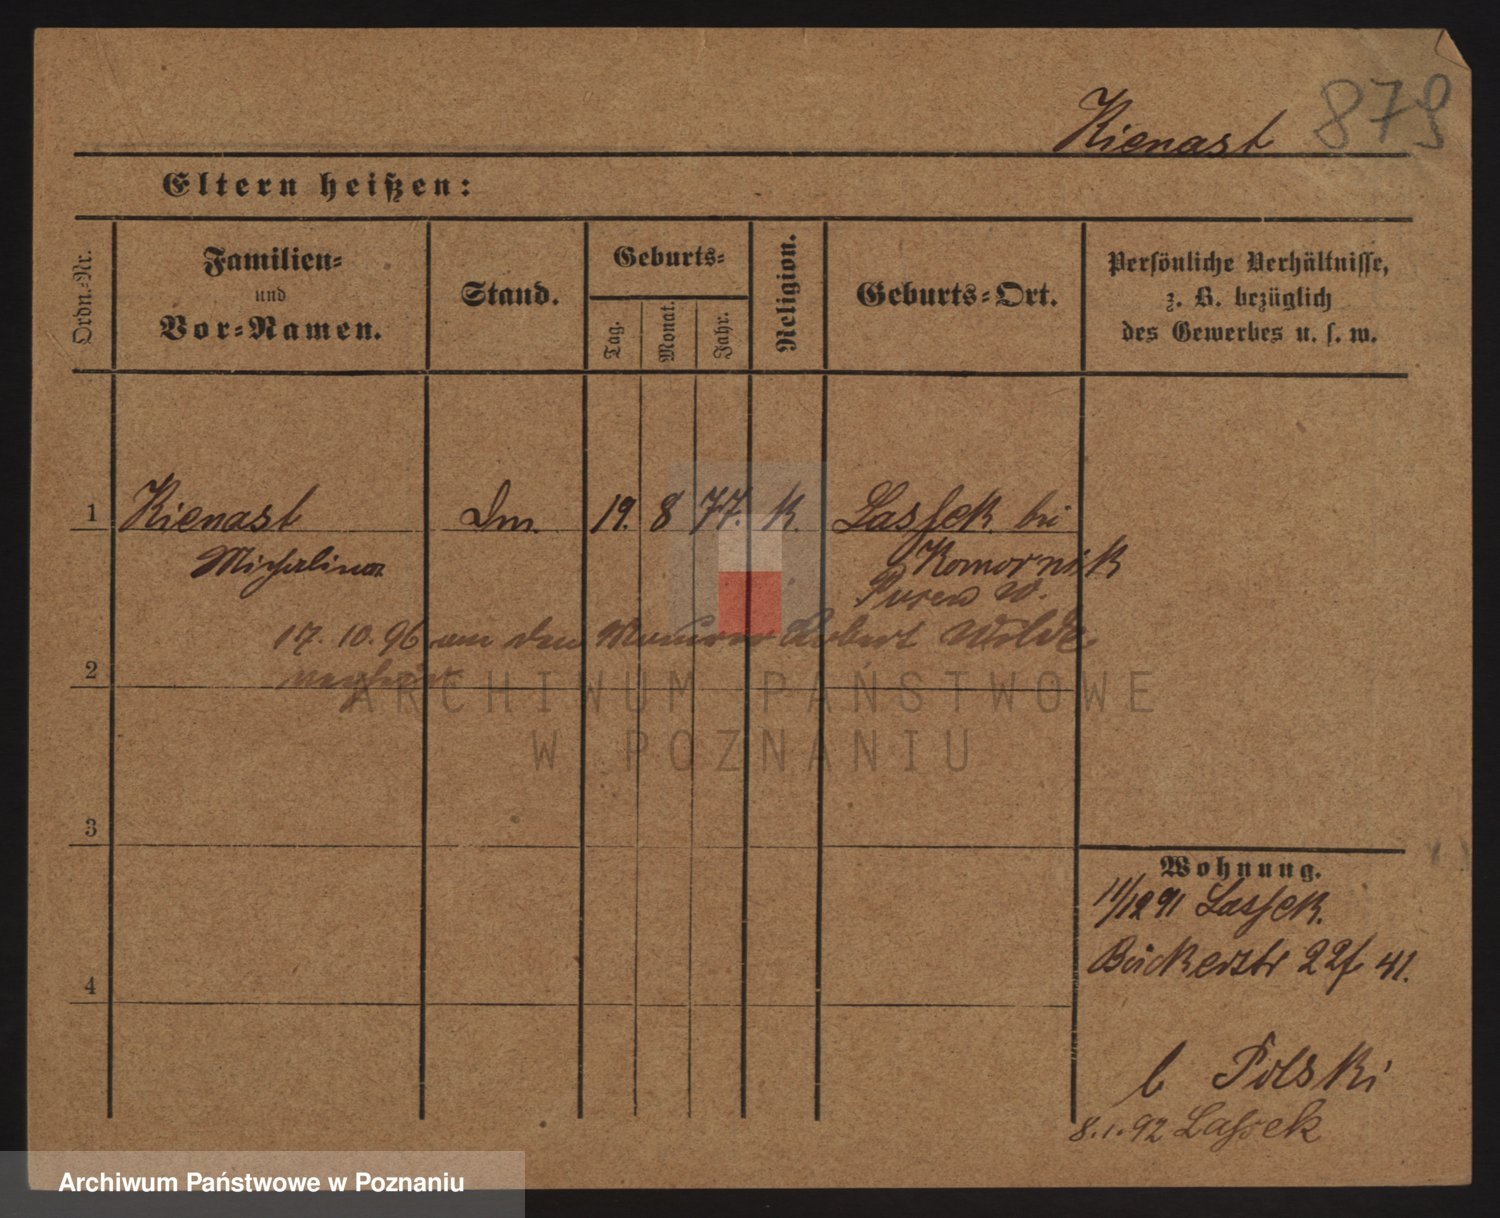 Kienast 879
Eltern heißen:
Ordn.-Nr.
Familien-
und
Vor-Namen.
Stand.
Geburts-
Tag.
Monat.
Jahr.
Religion.
Geburts-Ort.
Persönliche Verhältnisse,
z. B. bezüglich
des Gewerbes u. s. w.
1 Kienast Dm. 19. 8 77. K. Lassek bei
Michalina Komornik
Posen W.
17. 10. 96 an den Maurer Robert Wilde
2 verheir.
ARCHIWUM PAŃSTWOWE
W POZNANIU
3
Wohnung.
11/12 91 Lassek.
Bäckerstr 22f 41.
4
b Polski
8.1.92 Lassek
Archiwum Państwowe w Poznaniu